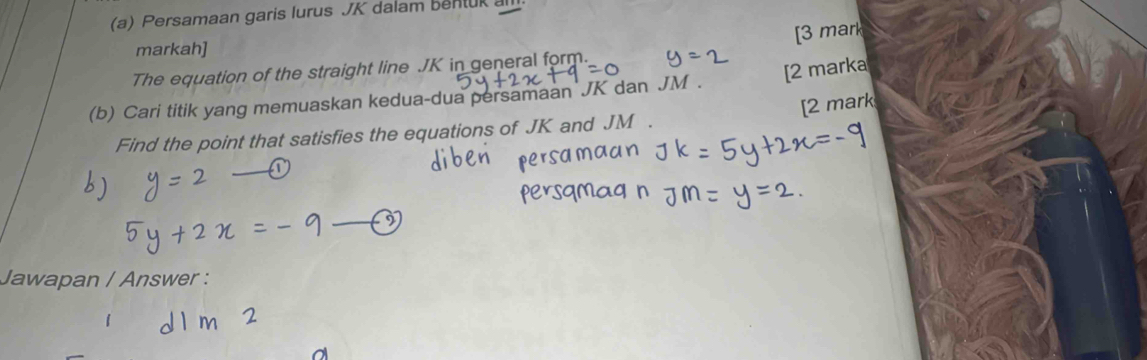 (a) Persamaan garis lurus JK dalam bentuk am.
[3 mark
markah]
The equation of the straight line JK in general form.
5y+2x+9=0 y=2
[2 marka
(b) Cari titik yang memuaskan kedua-dua persamaan JK dan JM .
[2 mark
Find the point that satisfies the equations of JK and JM .
diberi persamaan JK = 5y+2x=-9
b) y = 2 — ①
persamaan JM = y=2.
5y + 2x = - 9 — ②
Jawapan / Answer :
1 dlm 2